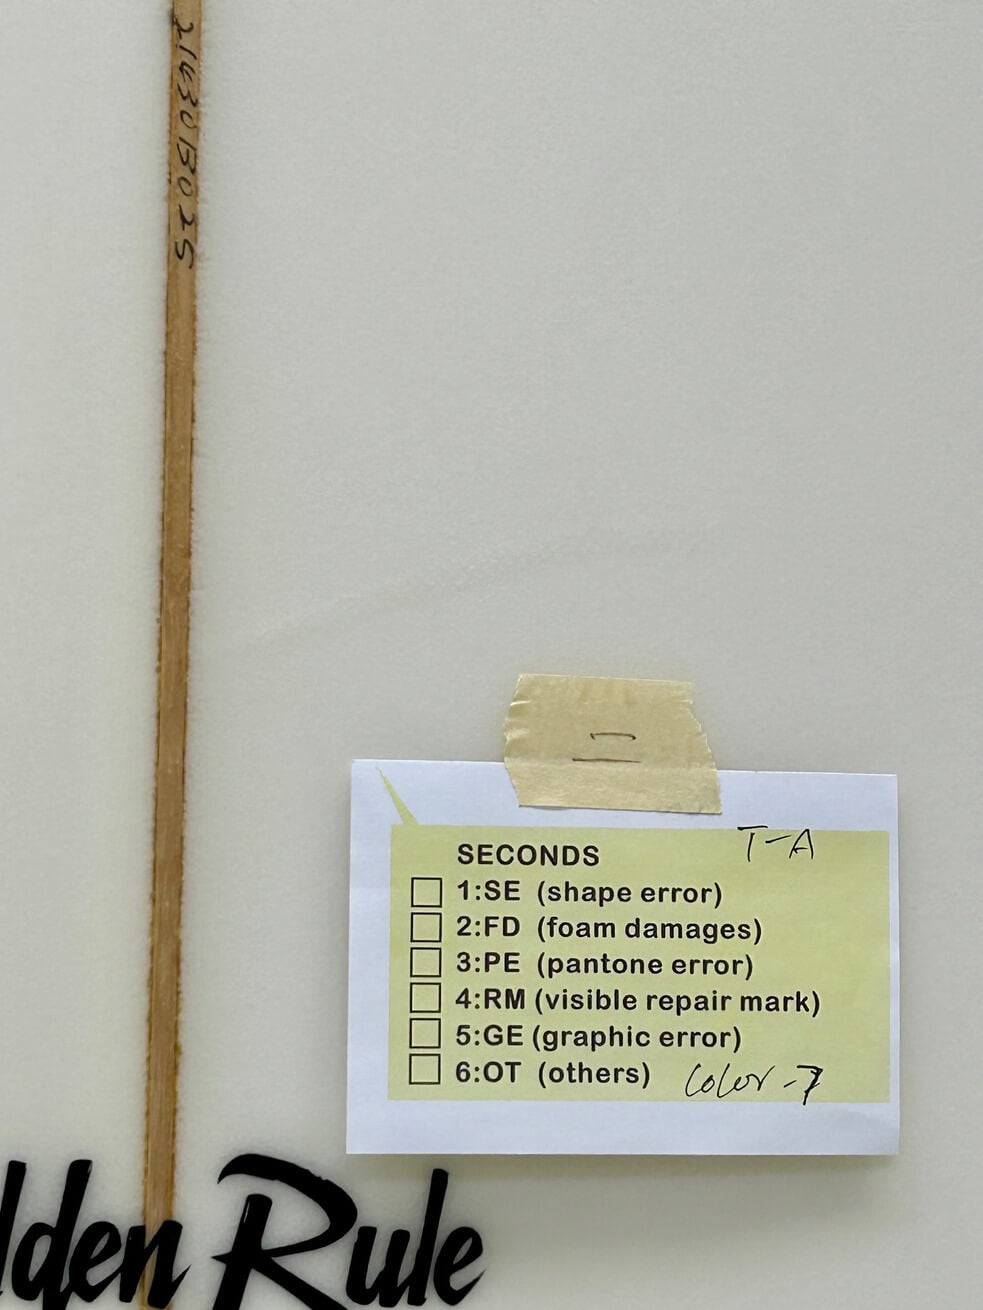 21430B025
T-A
SECONDS
1:SE (shape error)
2:FD (foam damages)
3:PE (pantone error)
4:RM (visible repair mark)
5:GE (graphic error)
6:OT (others) Color-7
lden Rule